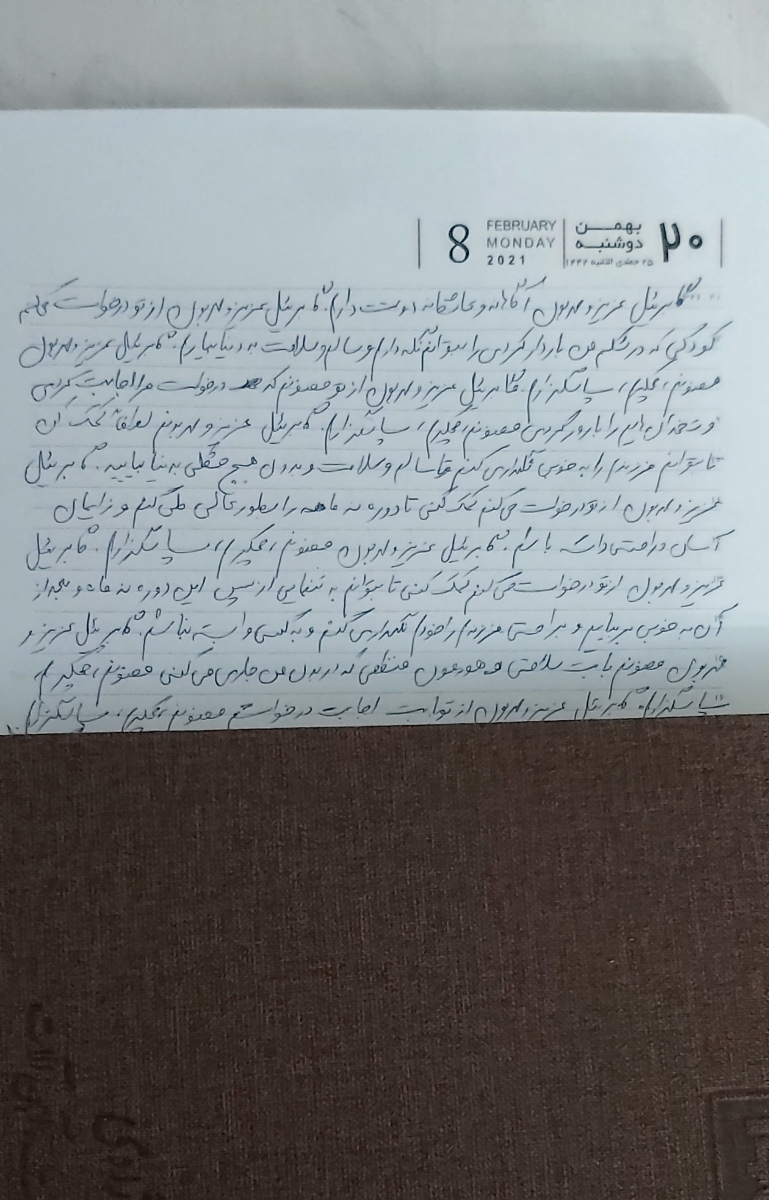 ۲۰
بهمن
دوشنبه
۲۵ جمادی الثانیه ۱۴۴۲
FEBRUARY
MONDAY
2021
8
گابرئیل عزیز و مهربون آگاهانه و عاشقانه دوست دارم. گابرئیل عزیز و مهربون از تو درخواست میکنم
کودکی که در شکم من باردار کردی را بتوانم نگه دارم و سالم و سلامت به دنیا بیارم. گابرئیل عزیز و مهربون
ممنونم، متشکرم، سپاسگزارم. گابرئیل عزیز و مهربون از تو ممنونم که درخواست مرا اجابت کردی
و تخمدان هایم را بارور کردی ممنونم، متشکرم، سپاسگزارم. گابرئیل عزیز و مهربونم لطفا کمک کن
تا بتوانم فرزندم را به خوبی نگهداری کنم تا سالم و سلامت و بدون هیچ مشکلی به دنیا بیاید. گابرئیل
عزیز و مهربون از تو درخواست می کنم کمک کنی تا دوره نه ماهه را بطور عالی طی کنم و زایمان
آسان و راحتی داشته باشم. گابرئیل عزیز و مهربون ممنونم، متشکرم، سپاسگزارم. گابرئیل
عزیز و مهربون از تو درخواست می کنم کمک کنی تا بتوانم به تنهایی از پس این دوره نه ماه و بعد از
آن به خوبی بربیایم و به راحتی فرزندم را خودم نگهداری کنم و به کسی وابسته نباشم. گابرئیل عزیز و
مهربون ممنونم بابت سلامتی و هورمون منظمی که در بدن من جاری می کنی ممنونم، متشکرم
سپاسگزارم. گابرئیل عزیز و مهربون از تو بابت اجابت درخواستم ممنونم، متشکرم، سپاسگزارم